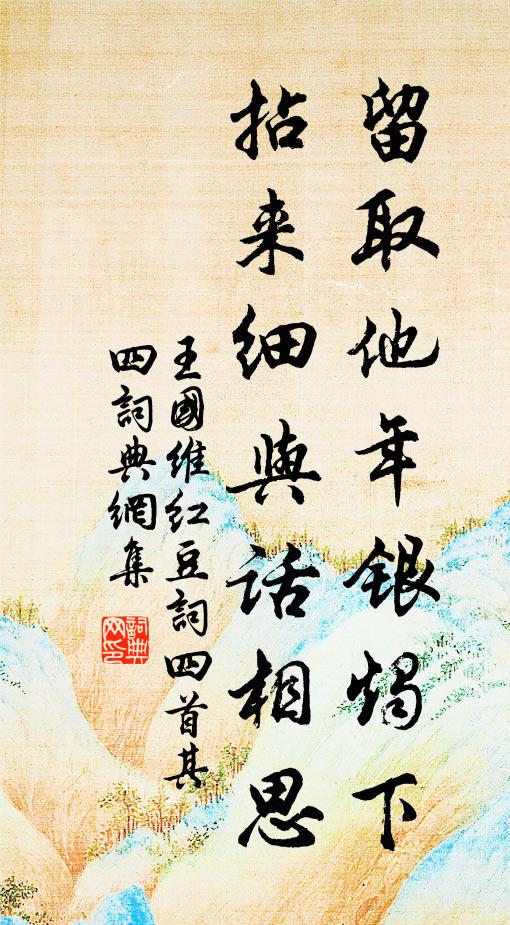 留取他年银烛下
拈来细与话相思
王國维红豆詞四首其
四詞典網集
詞典网印